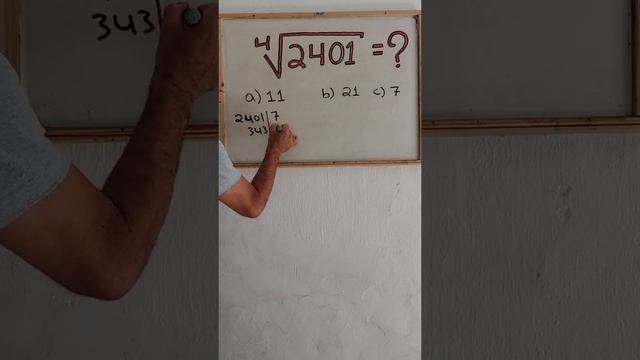 ⁴√2401 = ?
a) 11 b) 21 c) 7
2401|7
343|
343|